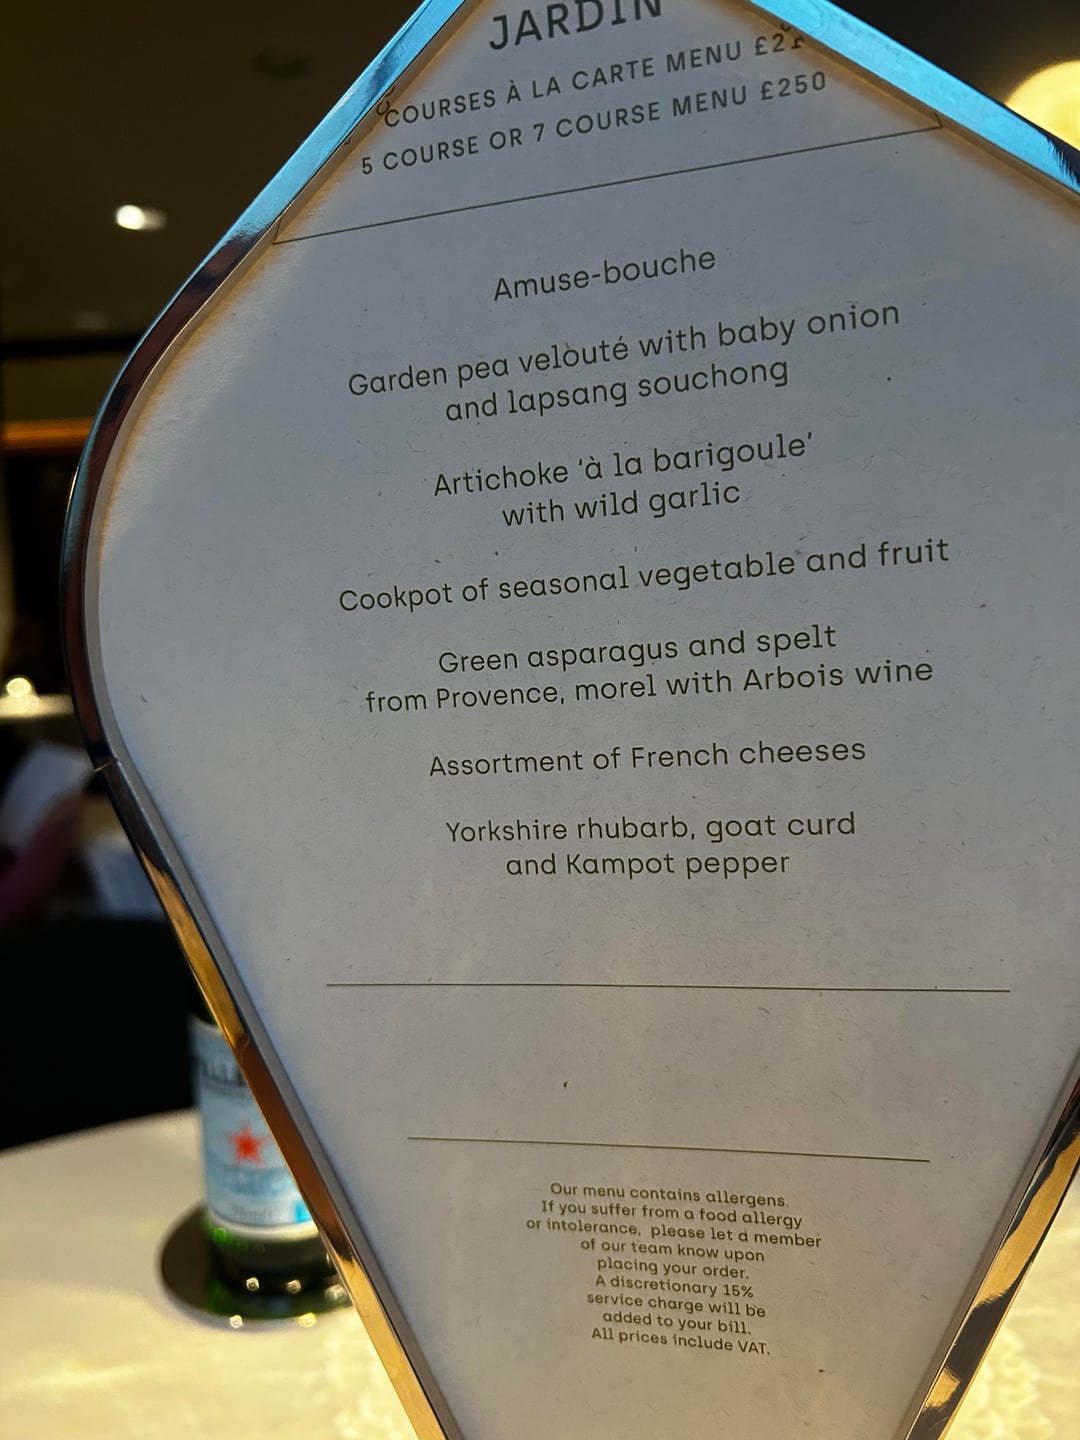 JARDIN
COURSES À LA CARTE MENU
5 COURSE OR 7 COURSE MENU £250
Amuse-bouche
Garden pea velouté with baby onion
and lapsang souchong
Artichoke ‘à la barigoule’
with wild garlic
Cookpot of seasonal vegetable and fruit
Green asparagus and spelt
from Provence, morel with Arbois wine
Assortment of French cheeses
Yorkshire rhubarb, goat curd
and Kampot pepper
Our menu contains allergens.
If you suffer from a food allergy
or intolerance, please let a member
of our team know upon
placing your order.
A discretionary 15%
service charge will be
added to your bill.
All prices include VAT.